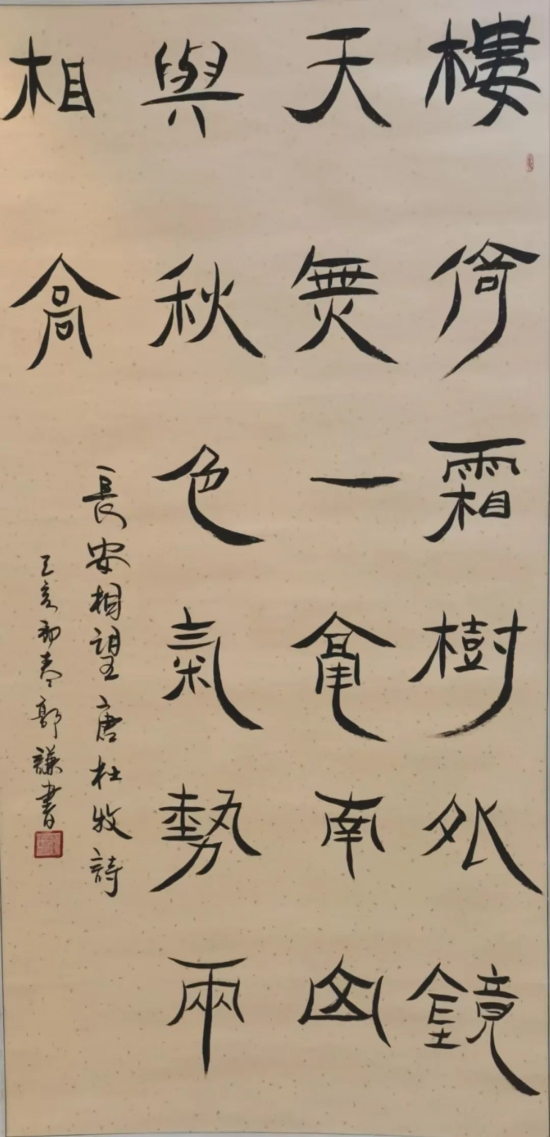 樓倚霜樹外鏡
天無一毫南山
與秋色氣勢兩
相高
長安相望唐杜牧詩
己亥初春郭謙書